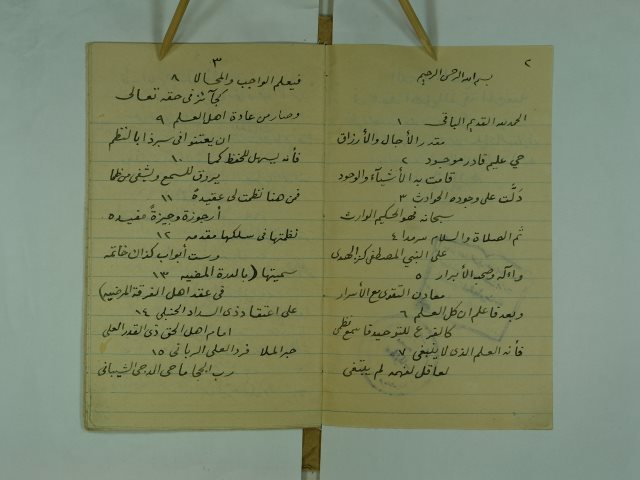 ٢
بسم الله الرحمن الرحيم
الحمد لله القديم الباقي ١
مقدر الآجال والأرزاق
حي عليم قادر موجود ٢
قامت به الأشيآء والوجود
دَلَّت على وجوده الحوادث ٣
سبحانه فهو الحكيم الوارث
ثم الصلاة والسلام سرمدا ٤
على النبي المصطفى كنز الهدى
وآله وصحبه الأبرار ٥
معادن التقوى مع الأسرار
وبعد فاعلم ان كل العلم ٦
كالفرع للتوحيد فاسمع نظمي
فأنه العلم الذي لا ينبغي ٧
لعاقل لفهمه لم يبتغي
٣
فيعلم الواجب والمحالا ٨
كجآئز في حقه تعالى
وصار من عادة اهل العلم ٩
ان يعتنوا في سبر ذا بالنظم
فأنه يسهل للحفظ كما ١٠
يروق للسمع ويشفي من ظما
فمن هنا نظمت لي عقيدة ١١
أرجوزة وجيزةً مفيده
نظمتها في سلكها مقدمه ١٢
وست أبواب كذاك خاتمه
سميتها (بالدرة المضيه ١٣
في عقد اهل الفرقة المرضيه)
على اعتقاد ذي السداد الحنبلي ١٤
امام اهل الحق ذي القدر العلي
حبر الملا فرد العلى الرباني ١٥
رب الحجا ماحي الدجى الشيباني